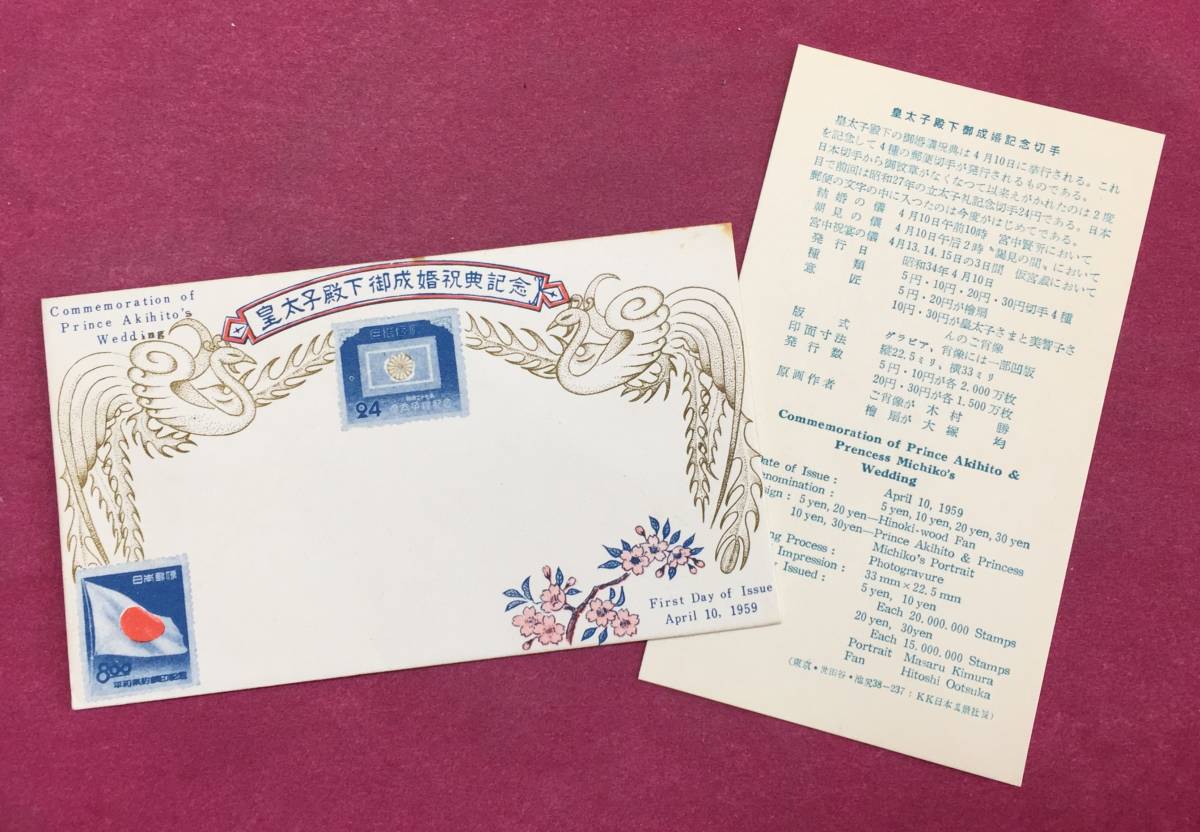 Commemoration of
Prince Akihito's
Wedding
皇太子殿下御成婚祝典記念
24
日本郵便
8.00
平和条約調印記念
First Day of Issue
April 10, 1959
皇太子殿下御成婚記念切手
皇太子殿下の御婚議祝典は4月10日に挙行される。これ
を記念して4種の郵便切手が発行されるものである。
日本切手から御紋章がなくなつて以来えがかれたのは2度
目で前回は昭和27年の立太子礼記念切手24円である。日本
郵便の文字の中に入つたのは今度がはじめてである。
結婚の儀 4月10日午前10時 宮中賢所において
朝見の儀 4月10日午后2時〝謁見の間〟において
宮中祝宴の儀 4月13.14.15日の3日間 仮宮殿において
発行日 昭和34年4月10日
種類 5円・10円・20円・30円切手4種
意匠 5円・20円が檜扇
10円・30円が皇太子さまと美智子さ
んのご肖像
版式 グラビア、肖像には一部凹版
印面寸法 縦22.5ミリ、横33ミリ
発行数 5円・10円が各2.000万枚
20円・30円が各1.500万枚
原画作者 ご肖像が 木村 勝
檜扇が 大塚 均
Commemoration of Prince Akihito &
Prencess Michiko's
Wedding
ate of Issue : April 10, 1959
enomination : 5 yen, 10 yen, 20 yen, 30 yen
sign : 5 yen, 20 yen—Hinoki-wood Fan
10 yen, 30yen—Prince Akihito & Princess
Michiko's Portrait
ng Process : Photogravure
Impression : 33 mm × 22.5 mm
Issued : 5 yen, 10 yen
Each 20.000.000 Stamps
20 yen, 30yen
Each 15.000.000 Stamps
Portrait Masaru Kimura
Fan Hitoshi Ootsuka
(東京・世田谷・池尻38-237 : KK日本風景社)